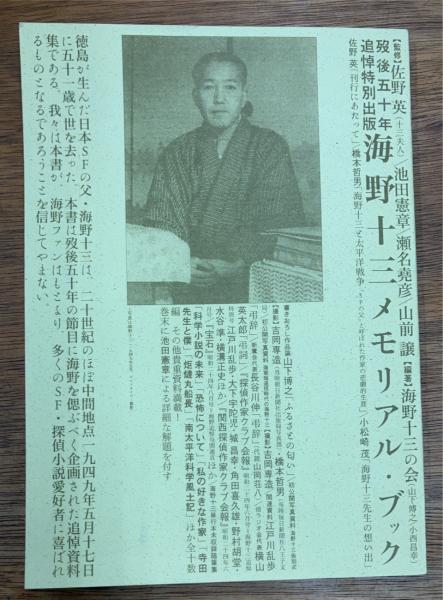 【監修】佐野 英(十三夫人)/池田憲章/瀬名堯彦/山前 譲【編著】海野十三の会(山下博之/小西昌幸)
歿後五十年
追悼特別出版
海野十三メモリアル・ブック
佐野 英「刊行にあたって」/橋本哲男「海野十三と太平洋戦争 〈SFの父〉と呼ばれた作家の悲劇的生涯」/小松崎 茂「海野十三先生の想い出」
書きおろし作品論 山下博之「ふるさとの匂い」
【撮影】吉岡専造
橋本哲男
「弔辞」
長谷川伸「弔辞」
山岡荘八
江戸川乱歩
横山
英太郎「弔詞」/『探偵作家クラブ会報』
江戸川乱歩・大下宇陀児・城 昌幸・角田喜久雄・野村胡堂・
水谷 準・横溝正史 ほか/『関西探偵作家クラブ会報』
『宝石』
ほか/海野十三単行本未収録随筆集
「科学小説の未来」「恐怖について」「私の好きな作家」「寺田
先生と僕」「炬燵丸船長」「南太平洋科学風土記」 ほか全十数
編 その他貴重資料満載!
巻末に池田憲章による詳細な解題を付す
徳島が生んだ日本SFの父・海野十三は、二十世紀のほぼ中間地点、一九四九年五月十七日
に五十一歳で世を去った。本書は歿後五十年の節目に海野を偲ぶべく企画された追悼資料
集である。我々は本書が、海野ファンはもとより、多くのSF・探偵小説愛好者に喜ばれ
るものとなるであろうことを信じてやまない。